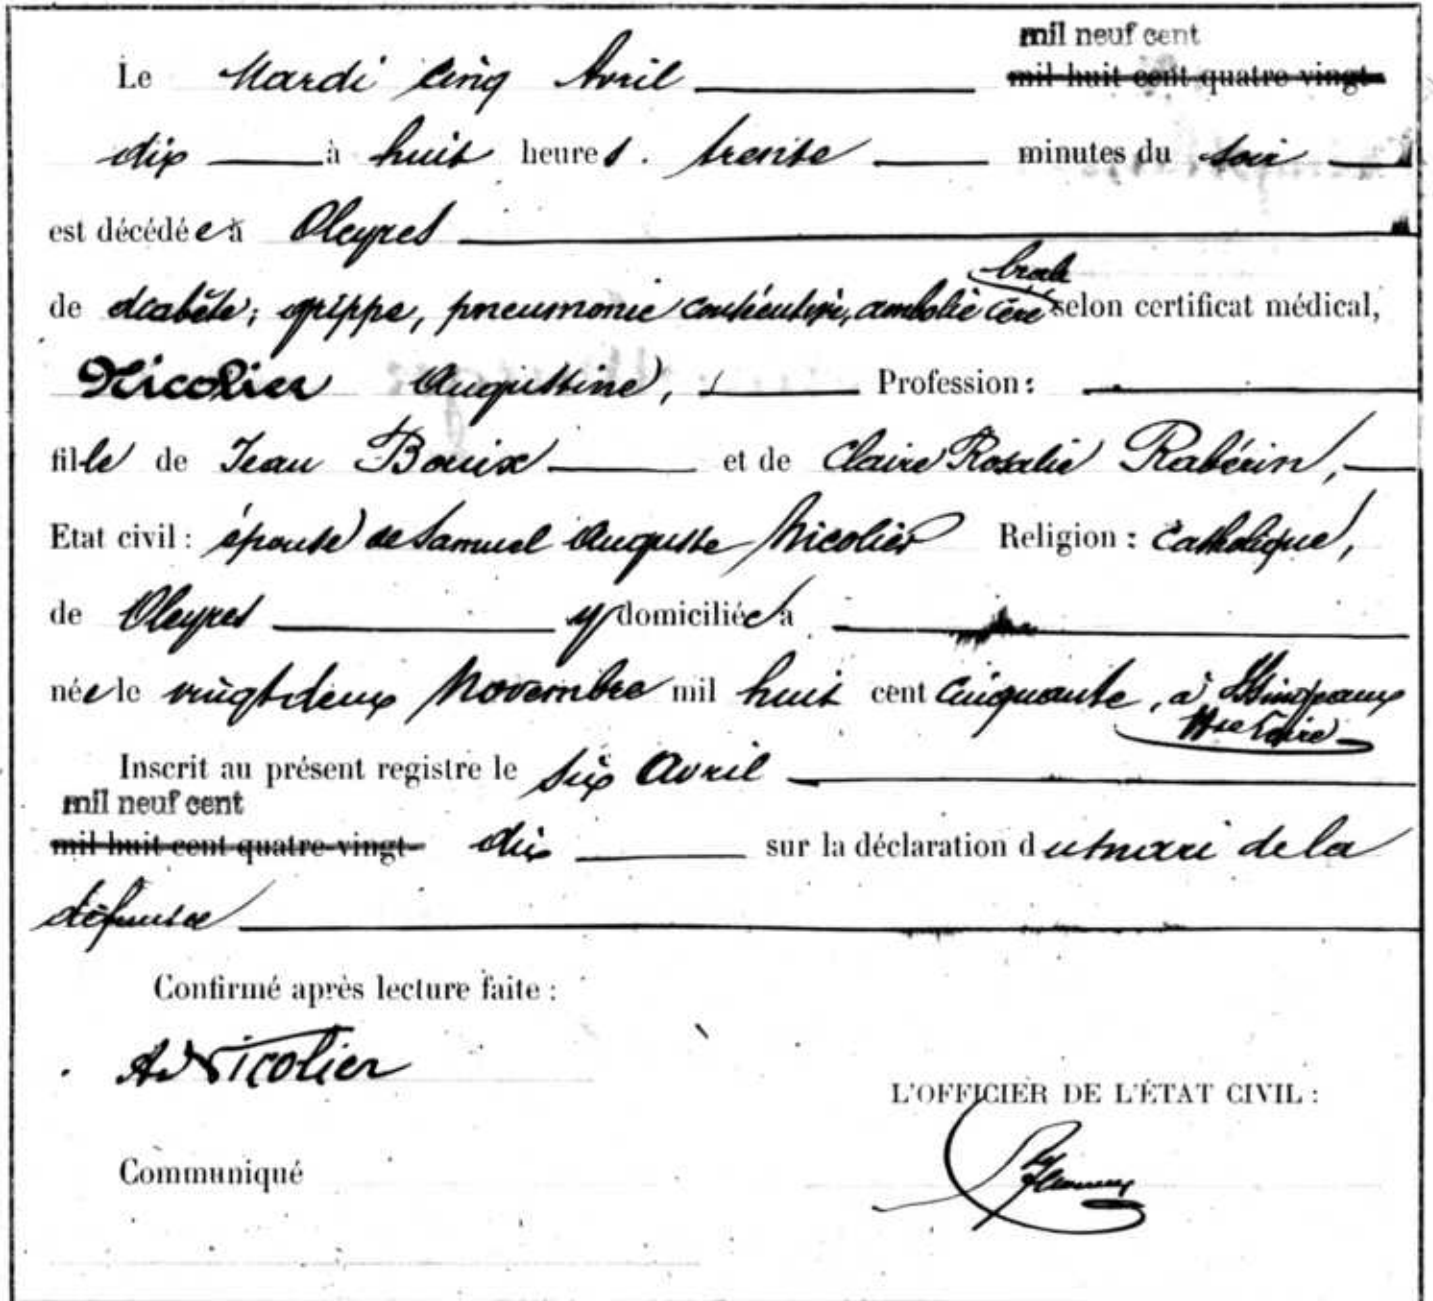 mil neuf cent
Le Mardi cinq Avril mil huit cent quatre-vingt-
dix à huit heures. trente minutes du soir
est décédée à Oleyres
brale
de diabète; grippe, pneumonie consécutive, embolie céré selon certificat médical,
Nicolier Augustine, Profession :
fille de Jean Bouix et de Claire Rosalie Rabérin,
Etat civil : épouse de Samuel Auguste Nicolier Religion : Catholique,
de Oleyres y domiciliée à
née le vingt deux Novembre mil huit cent cinquante, à
Hte Loire
Inscrit au présent registre le six Avril
mil neuf cent
mil huit cent quatre-vingt- dix sur la déclaration du mari de la
défunte
Confirmé après lecture faite :
A. Nicolier
L'OFFICIER DE L'ÉTAT CIVIL :
Communiqué